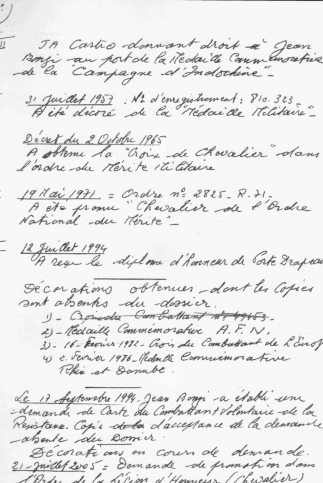 donnant droit à Jean
au port de la Médaille Commémorative
de la "Campagne d'Indochine"_
31 Juillet 1957 : N° d'enregistrement : 810.323_
A été décoré de la "Médaille Militaire"_
Décret du 2 Octobre 1965
A obtenu la "Croix de Chevalier" dans
l'ordre du Mérite Militaire
19 Mai 1971 = Ordre n° 2825_R.71_
A été promu "Chevalier de l'Ordre
National du Mérite"_
12 Juillet 1994
A reçu le diplôme d'honneur de Porte Drapeau
Décorations obtenues_dont les copies
sont absentes du dossier.
1)_ Croix du Combattant n°
2)_ Médaille Commémorative A.F.N.
3)_ 16_Février 1982_Croix du Combattant de l'Europe
4)_ 2_Février 1986_Médaille Commémorative
Rhin et Danube_
Le 17 Septembre 1994_Jean a établi une
demande de Carte du Combattant Volontaire de la
Résistance_Copie d'acceptance de la demande
absente du Dossier_
Décorations en cours de demande_
21_Juillet 2005 = Demande de promotion dans
l'Ordre de la Légion d'Honneur (Chevalier)